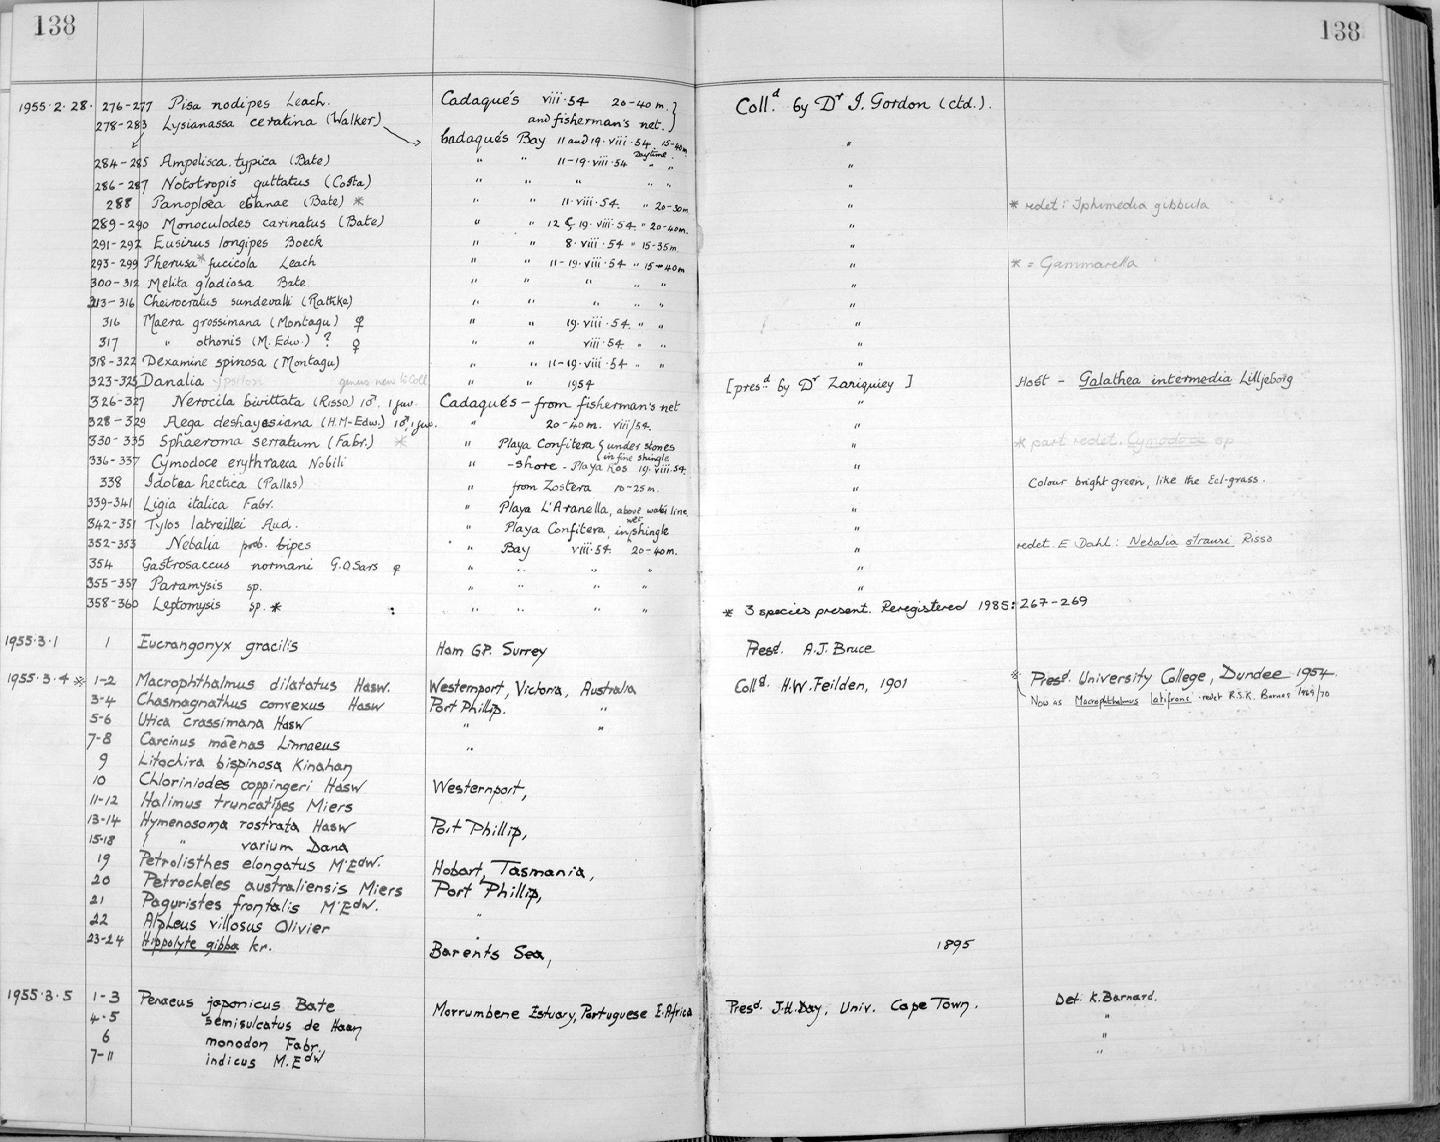 138 138
1955.2.28. 276-277 Pisa nodipes Leach. Cadaqués viii.54 20-40 m. } Coll.d by Dr I. Gordon (ctd.).
278-283 Lysianassa ceratina (Walker) and fisherman's net.
Cadaqués Bay 11 and 19.viii.54. 15-40m "
284-285 Ampelisca typica (Bate) " " 11-19.viii.54 Daytime " " "
286-287 Nototropis guttatus (Costa) " " " " " "
288 Panoploea eblanae (Bate) * " " 11.viii.54. " 20-30m " * redet: Iphimedia gibbula
289-290 Monoculodes carinatus (Bate) " " 12 & 19.viii.54. " 20-40m. "
291-292 Eusirus longipes Boeck " " 8.viii.54 " 15-35m "
293-299 Pherusa* fucicola Leach " " 11-19.viii.54 " 15-40m " * = Gammarella
300-312 Melita gladiosa Bate. " " " " " "
313-316 Cheirocratus sundevalli (Rathke) " " " " " "
316 Maera grossimana (Montagu) ♀ " " 19.viii.54. " " "
317 " othonis (M. Edw.) ? ♀ " " viii.54. " " "
318-322 Dexamine spinosa (Montagu) " " 11-19.viii.54 " " "
323-325 Danalia ypsilon genus new to Coll " " 1954 [pres.d by Dr Zariquiey] Host - Galathea intermedia Lilljeborg
326-327 Nerocila bivittata (Risso) 1♂, 1 juv. Cadaqués - from fisherman's net "
328-329 Aega deshayesiana (H.M-Edw.) 1♂, 1 juv. 20-40 m. viii/54. "
330-335 Sphaeroma serratum (Fabr.) * " Playa Confitera { under stones " * part redet. Cymodoce sp
in fine shingle
336-337 Cymodoce erythraea Nobili " -shore - Playa Ros 19.viii.54. "
338 Idotea hectica (Pallas) " from Zostera 10-25m. " Colour bright green, like the Eel-grass.
339-341 Ligia italica Fabr. " Playa L'Aranella, above water line. "
342-351 Tylos latreillei Aud. " Playa Confitera, in wet shingle "
352-353 Nebalia prob. bipes " Bay viii.54. 20-40m. " redet. E Dahl: Nebalia strausi Risso
354 Gastrosaccus normani G.O Sars ♀ " " " " "
355-357 Paramysis sp. " " " " "
358-360 Leptomysis sp. * " " " " * 3 species present. Reregistered 1985:267-269
1955.3.1 1 Eucrangonyx gracilis Ham GP. Surrey Presd. A.J. Bruce
1955.3.4 * 1-2 Macrophthalmus dilatatus Hasw. Westernport, Victoria, Australia Colld. H.W. Feilden, 1901 * Presd. University College, Dundee 1954.
3-4 Chasmagnathus convexus Hasw Port Phillip. " Now as Macrophthalmus latifrons redet R.S.K. Barnes 1969/70
5-6 Utica crassimana Hasw " "
7-8 Carcinus maenas Linnaeus "
9 Litochira bispinosa Kinahan
10 Chloriniodes coppingeri Hasw Westernport,
11-12 Halimus truncatipes Miers
13-14 Hymenosoma rostrata Hasw Port Phillip,
15-18 " varium Dana
19 Petrolisthes elongatus M'Edw. Hobart, Tasmania,
20 Petrocheles australiensis Miers Port Phillip,
21 Paguristes frontalis M'Edw. "
22 Alpheus villosus Olivier "
23-24 Hippolyte gibba kr. Barents Sea, 1895
1955.3.5 1-3 Penaeus japonicus Bate Morrumbene Estuary, Portuguese E. Africa Presd. J.H. Day, Univ. Cape Town. Det. K. Barnard.
4-5 semisulcatus de Haan "
6 monodon Fabr. "
7-11 indicus M. Edw "